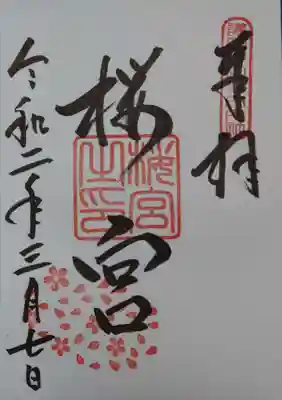 奉拝
桜宮
桜宮之印
令和二年三月七日